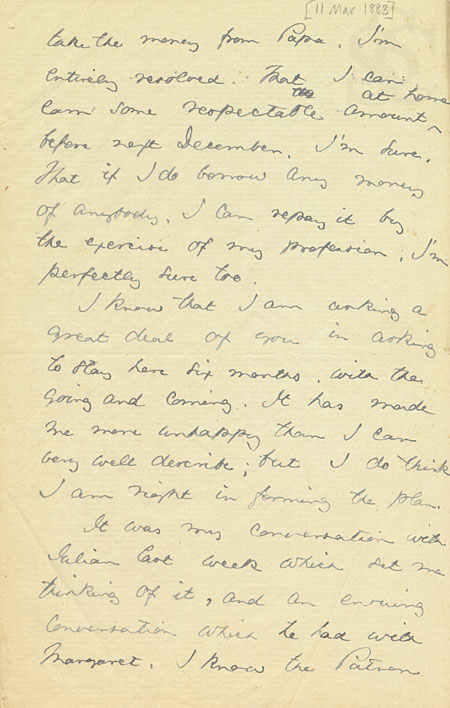 [11 Mar 1883]
take the money from Papa. I'm
entirely resolved. That I can
at home
earn some respectable amount ^
before next December, I'm sure.
That if I do borrow any money
of anybody, I can repay it by
the exercise of my profession, I'm
perfectly sure too.
I know that I am asking a
great deal of you in asking
to stay here six months, with the
going and coming. It has made
me more unhappy than I can
very well describe; but I do think
I am right in forming the plan.
It was my conversation with
Julian last week which set me
thinking of it, and an ensuing
conversation which he had with
Margaret. I know the Patron